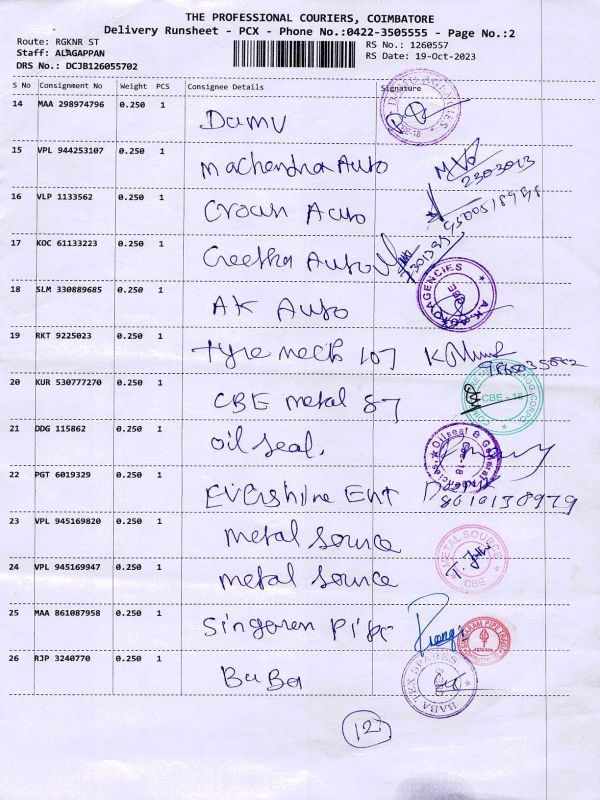 THE PROFESSIONAL COURIERS, COIMBATORE
Delivery Runsheet - PCX - Phone No.:0422-3505555 - Page No.:2
Route: RGKNR ST
Staff: ALAGAPPAN
DRS No.: DCJB126055702
RS No.: 1260557
RS Date: 19-Oct-2023
S No Consignment No Weight PCS Consignee Details Signature
14 MAA 298974796 0.250 1 Damu
CBE-18
15 VPL 944253107 0.250 1 Machendra Auto
16 VLP 1133562 0.250 1 Crown Auto
17 KOC 61133223 0.250 1 Geetha Auto
18 SLM 330889685 0.250 1 AK Auto
A.K. AUTO AGENCIES CBE
19 RKT 9225023 0.250 1 Tyre mech 107
20 KUR 530777270 0.250 1 CBE metal 87
CBE - 18
21 DDG 115862 0.250 1 oil seal.
Oilseal & General Agencies CBE-18
22 PGT 6019329 0.250 1 Evershine Ent
8610138979
23 VPL 945169820 0.250 1 metal source
METAL SOURCE CBE
24 VPL 945169947 0.250 1 metal source
25 MAA 861087958 0.250 1 Singaren Pipe
26 RJP 3240770 0.250 1 BaBa
BABA TEX SPARES
127